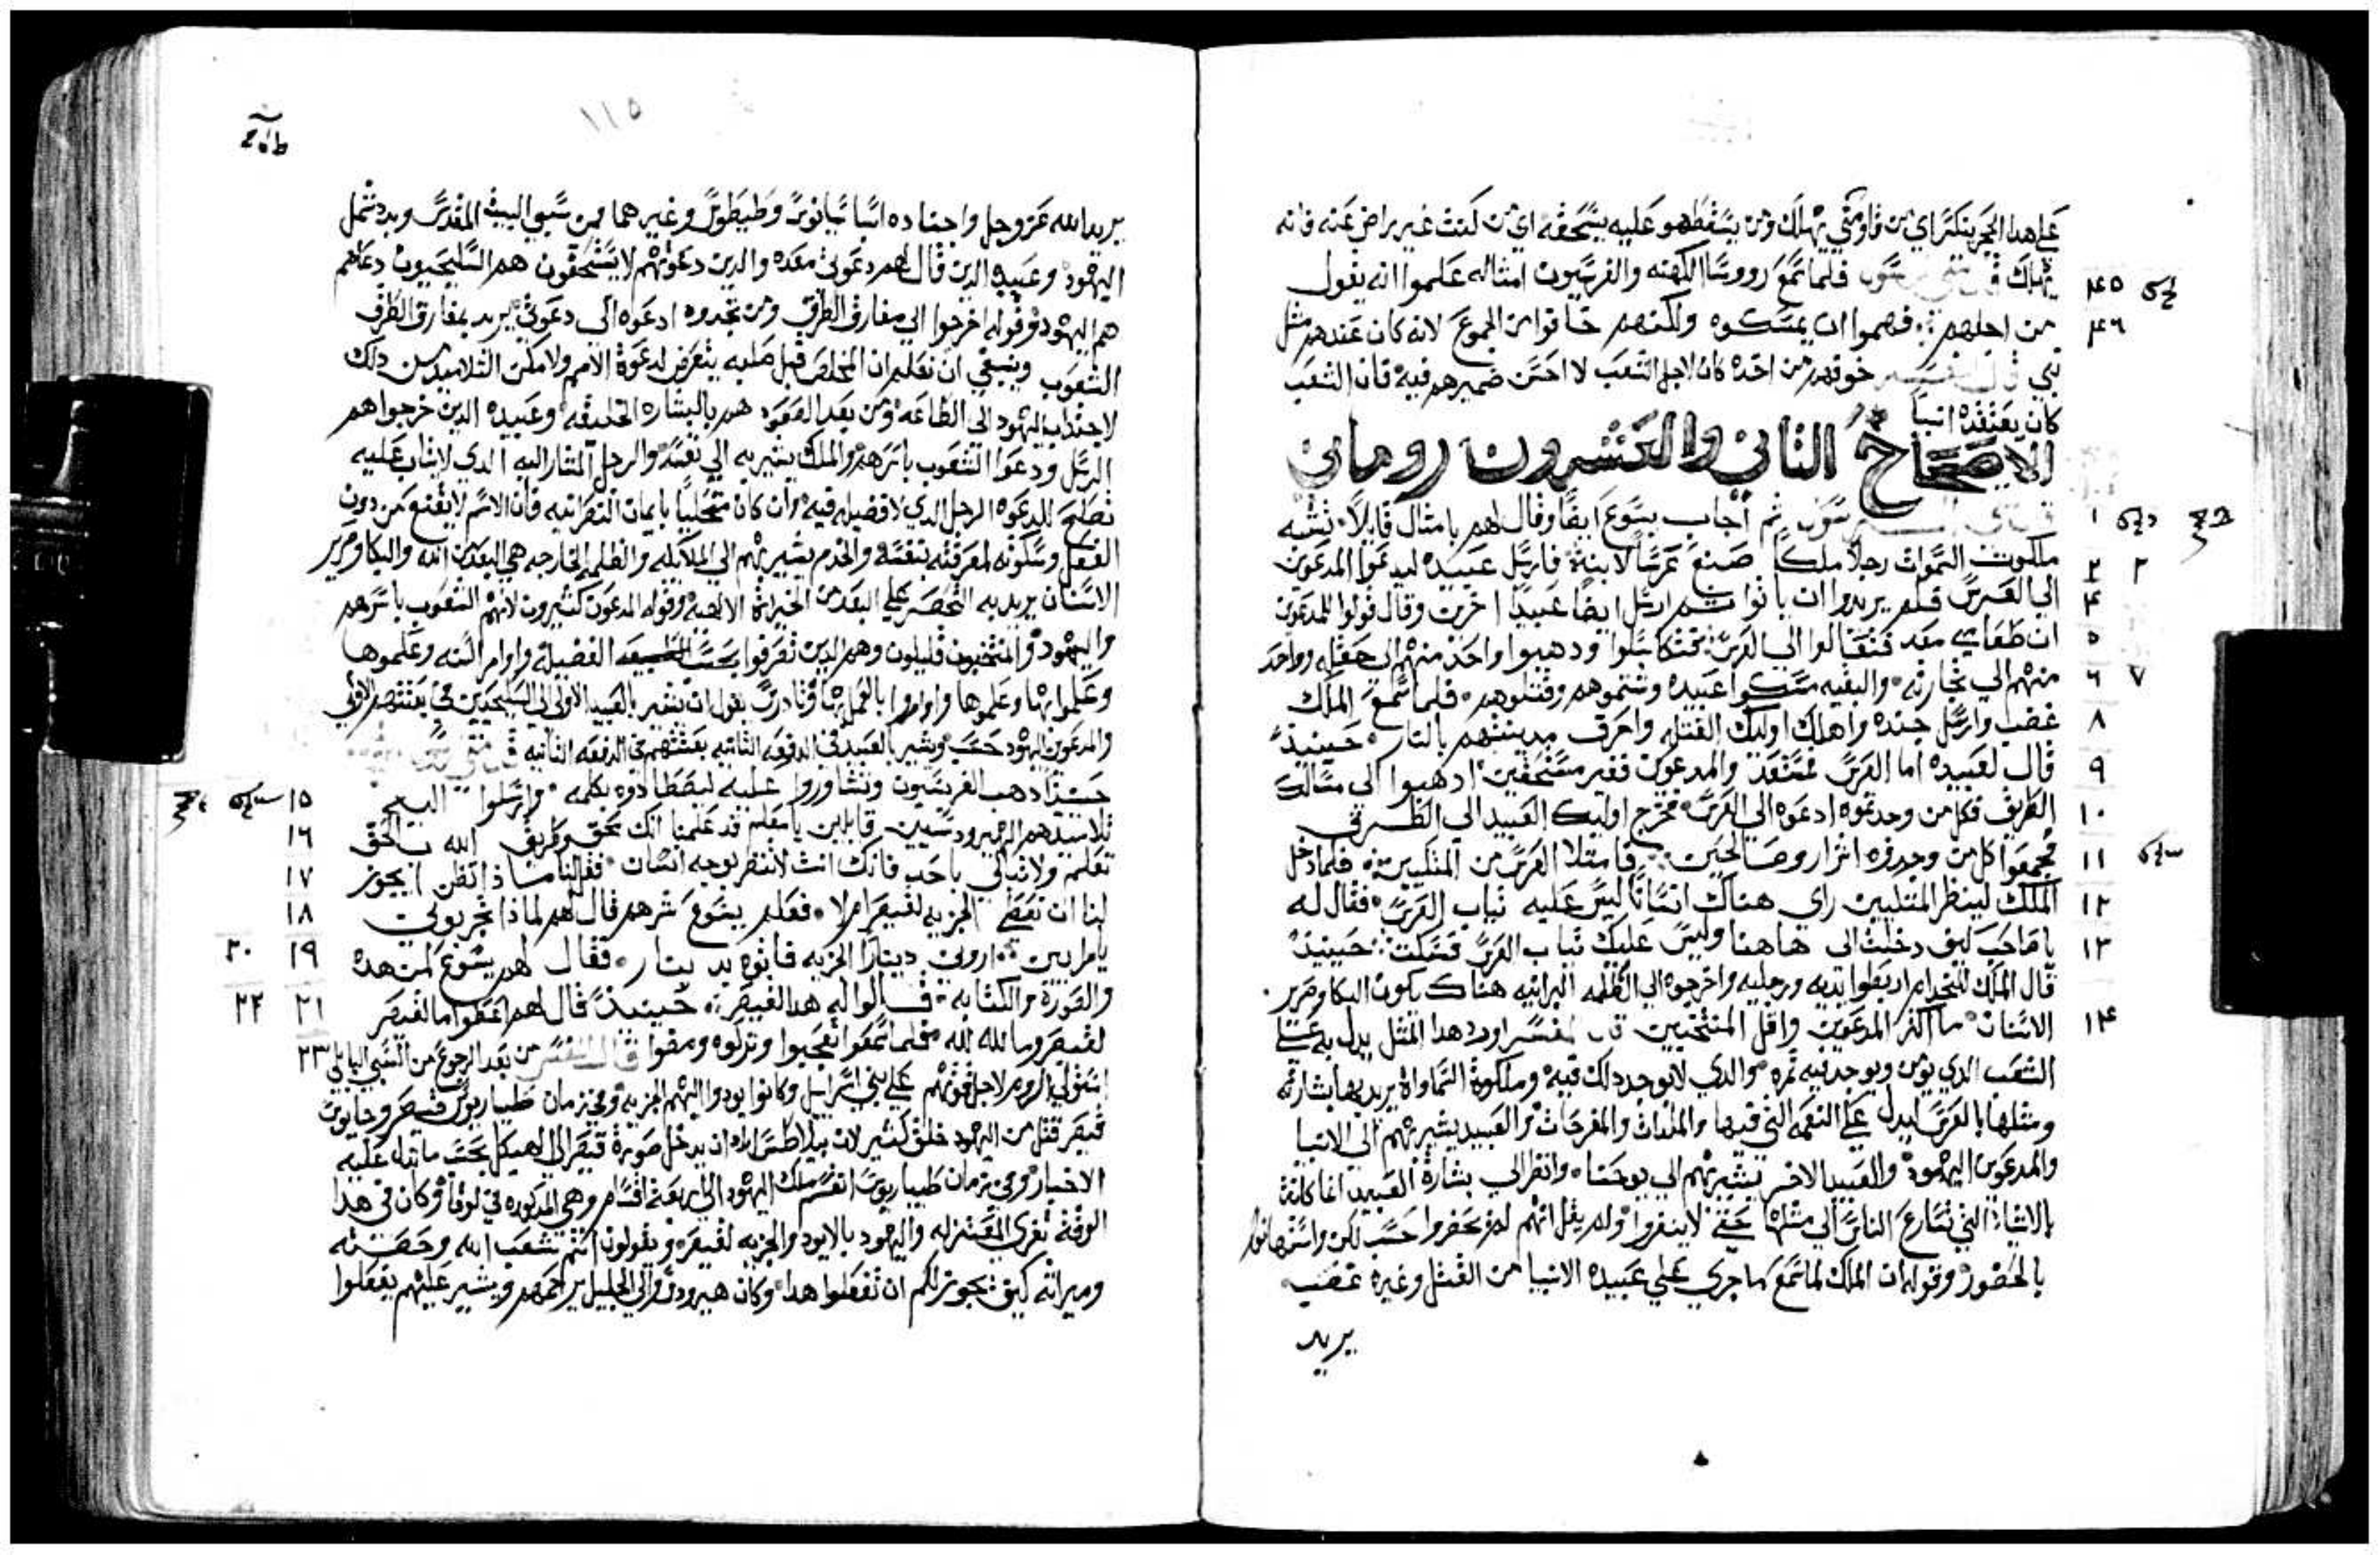 علي هدا الحجر ينكسر اي من قاومني يهلك ومن يسقط هو عليه يسحقه اي من كنت غير راض عنه فانه
يهلك قال متي فلما سمع رووسا الكهنه والفريسيون امثاله علموا انه يقول
٤٥
من اجلهم فهموا ان يمسكوه ولكنهم خافوا من الجموع لانه كان عندهم مثل
٤٦
نبي قال المفسر خوفهم من اخده كان لاجل الشعب لا احسن ضميرهم فيه فان الشعب
كان يعتقده انبيا
الاصحاح الثاني والعشرون روماني
ثم أجاب يسوع ايضا وقال لهم بامثال قايلا تشبه
١
ملكوت السموات رجلا ملكا صنع عرسا لابنه فارسل عبيده ليدعوا المدعوين
٢ ٣
الي العرس فلم يريدوا ان ياتوا ثم ارسل ايضا عبيدا اخرين وقال قولوا للمدعوين
٤
ان طعامي معد فتعالوا الي العرس فتكاسلوا ودهبوا واحد منهم الي حقله وواحد
٥
منهم الي تجارته والبقيه مسكوا عبيده وشتموهم وقتلوهم فلما سمع الملك
٦ ٧
غضب وارسل جنده واهلك اوليك القتله واحرق مدينتهم بالنار حينيذ
٨
قال لعبيده اما العرس فمستعد والمدعوين فغير مستحقين ادهبوا الي مسالك
٩
الطريق فكل من وجدتموه ادعوه الي العرس فخرج اوليك العبيد الي الطريق
١٠
فجمعوا كل من وجدوه اشرار وصالحين فامتلا العرس من المتكيين فلما دخل
١١
الملك لينظر المتكيين راي هناك انسانا ليس عليه ثياب العرس فقال له
١٢
يا صاحب كيف دخلت الي هاهنا وليس عليك ثياب العرس فسكت حينيذ
١٣
قال الملك للخدام اربطوا يديه ورجليه واخرجوه الي الظلمه البرانيه هناك يكون البكا وصرير
الاسنان ما اكثر المدعوين واقل المنتخبين قال المفسر اورد هدا المثل يدل به علي
١٤
الشعب الدي يومن ويوجد فيه ثمره والدي لا يوجد دلك فيه وملكوة السماواة يريد بها بشارته
ومثلها بالعرس ليدل علي النعمه التي فيها والملدات والمفرحات والعبيد يشير بهم الي الانبيا
والمدعوين اليهود والعبيد الاخر يشير بهم الي يوحنا وانظر الي بشارة العبيد انما كانت
بالاشيا التي تسارع الناس الي مثلها حتي لا ينفروا ولم يقل انهم لم يحضروا حسب لكن واستهانوا
بالحضور وقوله ان الملك لما سمع ما جري علي عبيده الانبيا من القتل وغيره غضب
يريد
١١٥
يريد الله عز وجل واجناده اسباسيانوس وطيطوس وغيرهما ممن سبوا البيت المقدس وبدد شمل
اليهود وعبيده الدين قال لهم دعوتي معده والدين دعوتهم لا يستحقون هم السليحيون دعاهم
هم اليهود وقوله اخرجوا الي مفارق الطرق ومن تجدوه ادعوه الي دعوتي يريد بمفارق الطرق
الشعوب وينبغي ان نعلم ان المخلص قبل صلبه يتعرض لدعوة الامم ولا مكن التلاميد من دلك
لاجتداب اليهود الي الطاعه ومن بعد الصعود هم بالبشاره الخليقه وعبيده الدين خرجوا هم
الرسل ودعوا الشعوب باسرهم والملك يشير به الي نفسه والرجل المشار اليه الدي لا ثياب عليه
تصلح للدعوه الرجل الدي لا فضيله فيه وان كان متحليا بايمان النصرانيه فان الاسم لا يقنع من دون
الفعل وسكوته لمعرفته بنفسه والخدم يشير بهم الي الملايكه والظلمه الخارجه هي البعد من الله والبكا وصرير
الاسنان يريد به التحصر علي البعد من الخيراة الالاهيه وقوله المدعون كثيرون لانهم الشعوب باسرهم
واليهود والمنتخبون قليلون وهم الدين تعرفوا بحسب الطبيعه الفضيله واوامر السنه وعلموها
وعملوا بها وعلموها واوامروا بالعمل بها وتادرس يقول ان يشير بالعبيد الاولي الي السليحيين في بعثتهم الاولي
والمدعون اليهود حسب ويشير بالعبيد في الدفعه الثانيه بعثتهم في الدفعه الثانيه قال متي
حينيذ ادهب الفريسيون وتشاوروا عليه ليصطادوه بكلمه وارسلوا اليه
١٥
تلاميدهم الهيرودسيين قايلين يا معلم قد علمنا انك محق وطريق الله بالحق
١٦
تعلم ولا تبالي باحد فانك انت لا تنظر لوجه انسان فقل لنا ماذا تظن ايجوز
١٧
لنا ان نعطي الجزيه لقيصر ام لا فعلم يسوع شرهم قال لهم لماذا تجربوني
١٨
يا مرايين اروني دينار الجزيه فاتوه بدينار فقال لهم يسوع لمن هده
١٩ ٢٠
والصورة والكتابه قالوا له هدا لقيصر حينيذ قال لهم اعطوا ما لقيصر
٢١ ٢٢
لقيصر وما لله لله فلما سمعوا تعجبوا وتركوه ومضوا قال المفسر من بعد الرجوع من السبي البابلي
٢٣
استولي الروم لاجل قوتهم علي بني اسراييل وكانوا يودوا اليهم الجزيه وفي زمان طيباريوس قيصر وجايوس
قيصر قتل من اليهود خلق كثير لان بيلاطس اراد ان يدخل صورة قيصر الي الهيكل بحسب ما تدل عليه
الاخبار وفي زمان طيباريوس انقسم ملك اليهود الي اربعة اقسام وهي المدكوره في لوقا وكان في هدا
الوقت تغري المعتزله واليهود بالايود والجزيه لقيصر ويقولون انتم شعب الله وحصته
وميراثه كيف يجوز لكم ان تفعلوا هدا وكان هيرودس والي الجليل يرحمهم ويشير عليهم يفعلوا